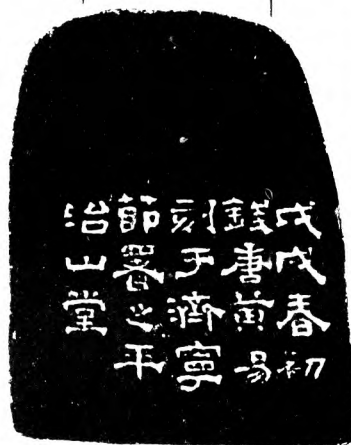 戊戌春初
錢唐黃易
刻于濟寧
節署之平
治山堂